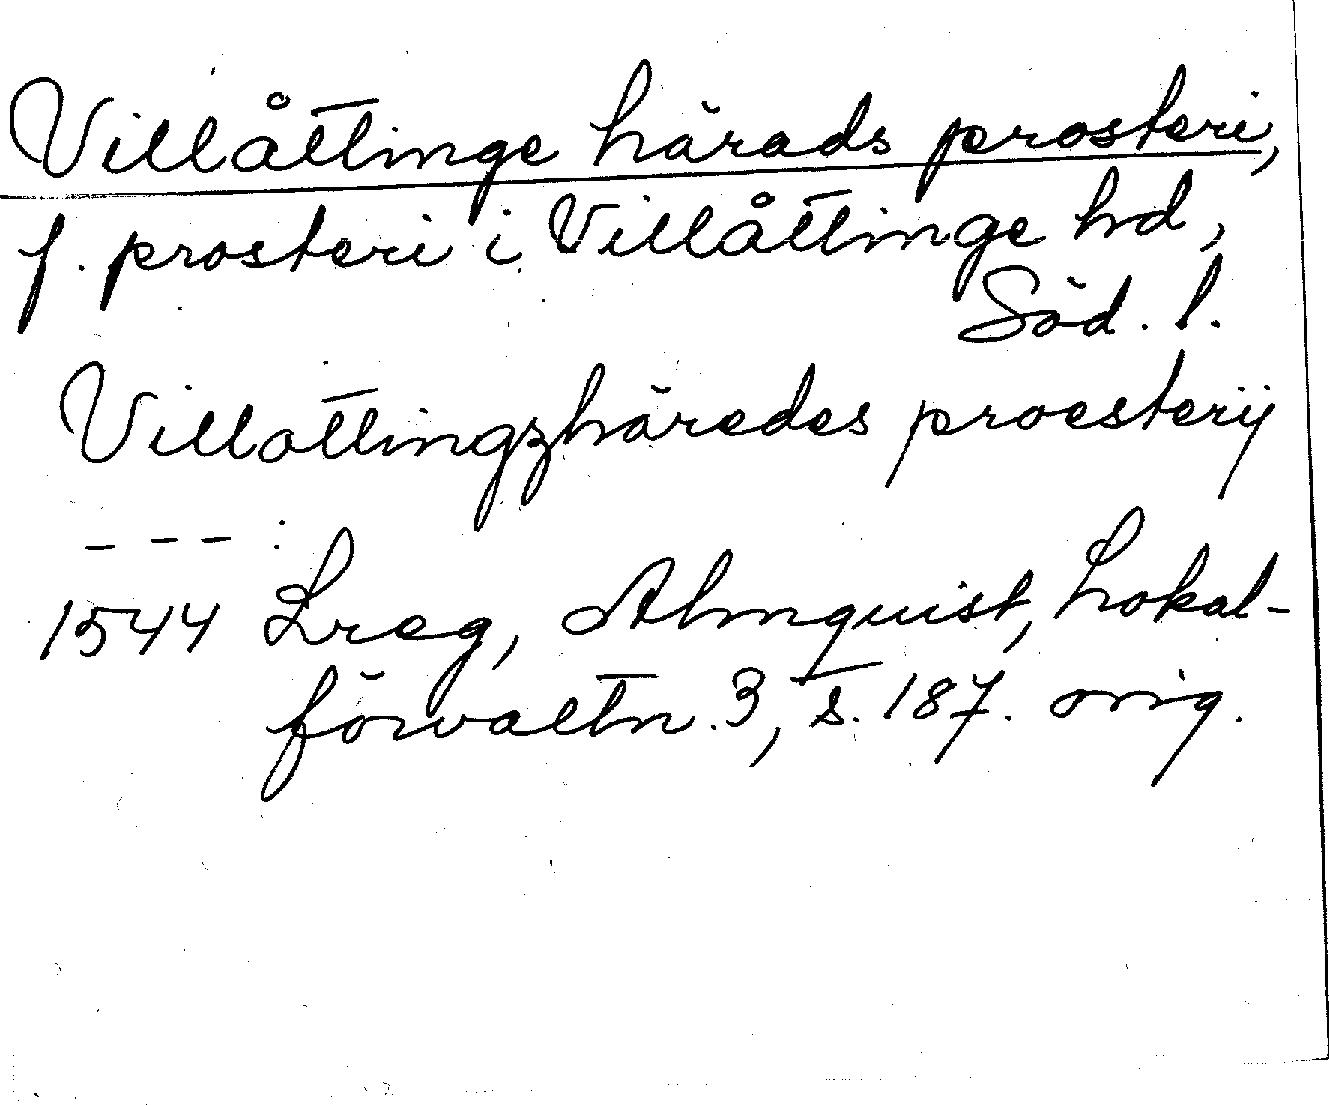 Villåttinge härads prosteri,
f. prosteri i Villåttinge hd,
Söd. l.
Villottingzhäredes proesterij
– – – :
1544 Lreg, Almquist, Lokal-
förvaltn. 3, s. 187. orig.